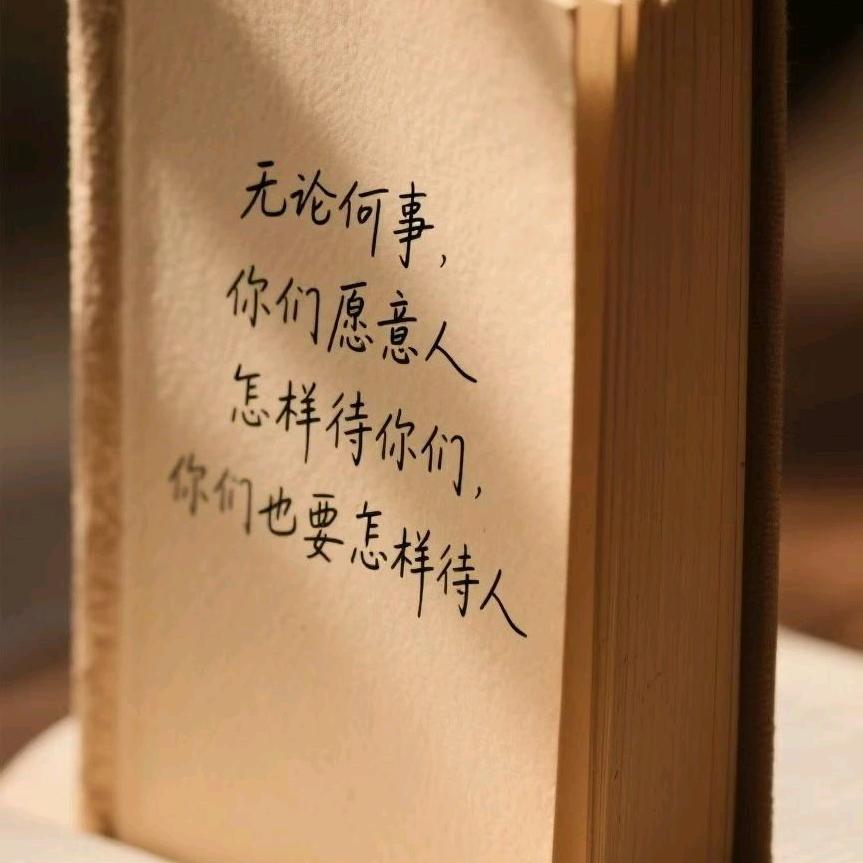 无论何事,
你们愿意人
怎样待你们,
你们也要怎样待人